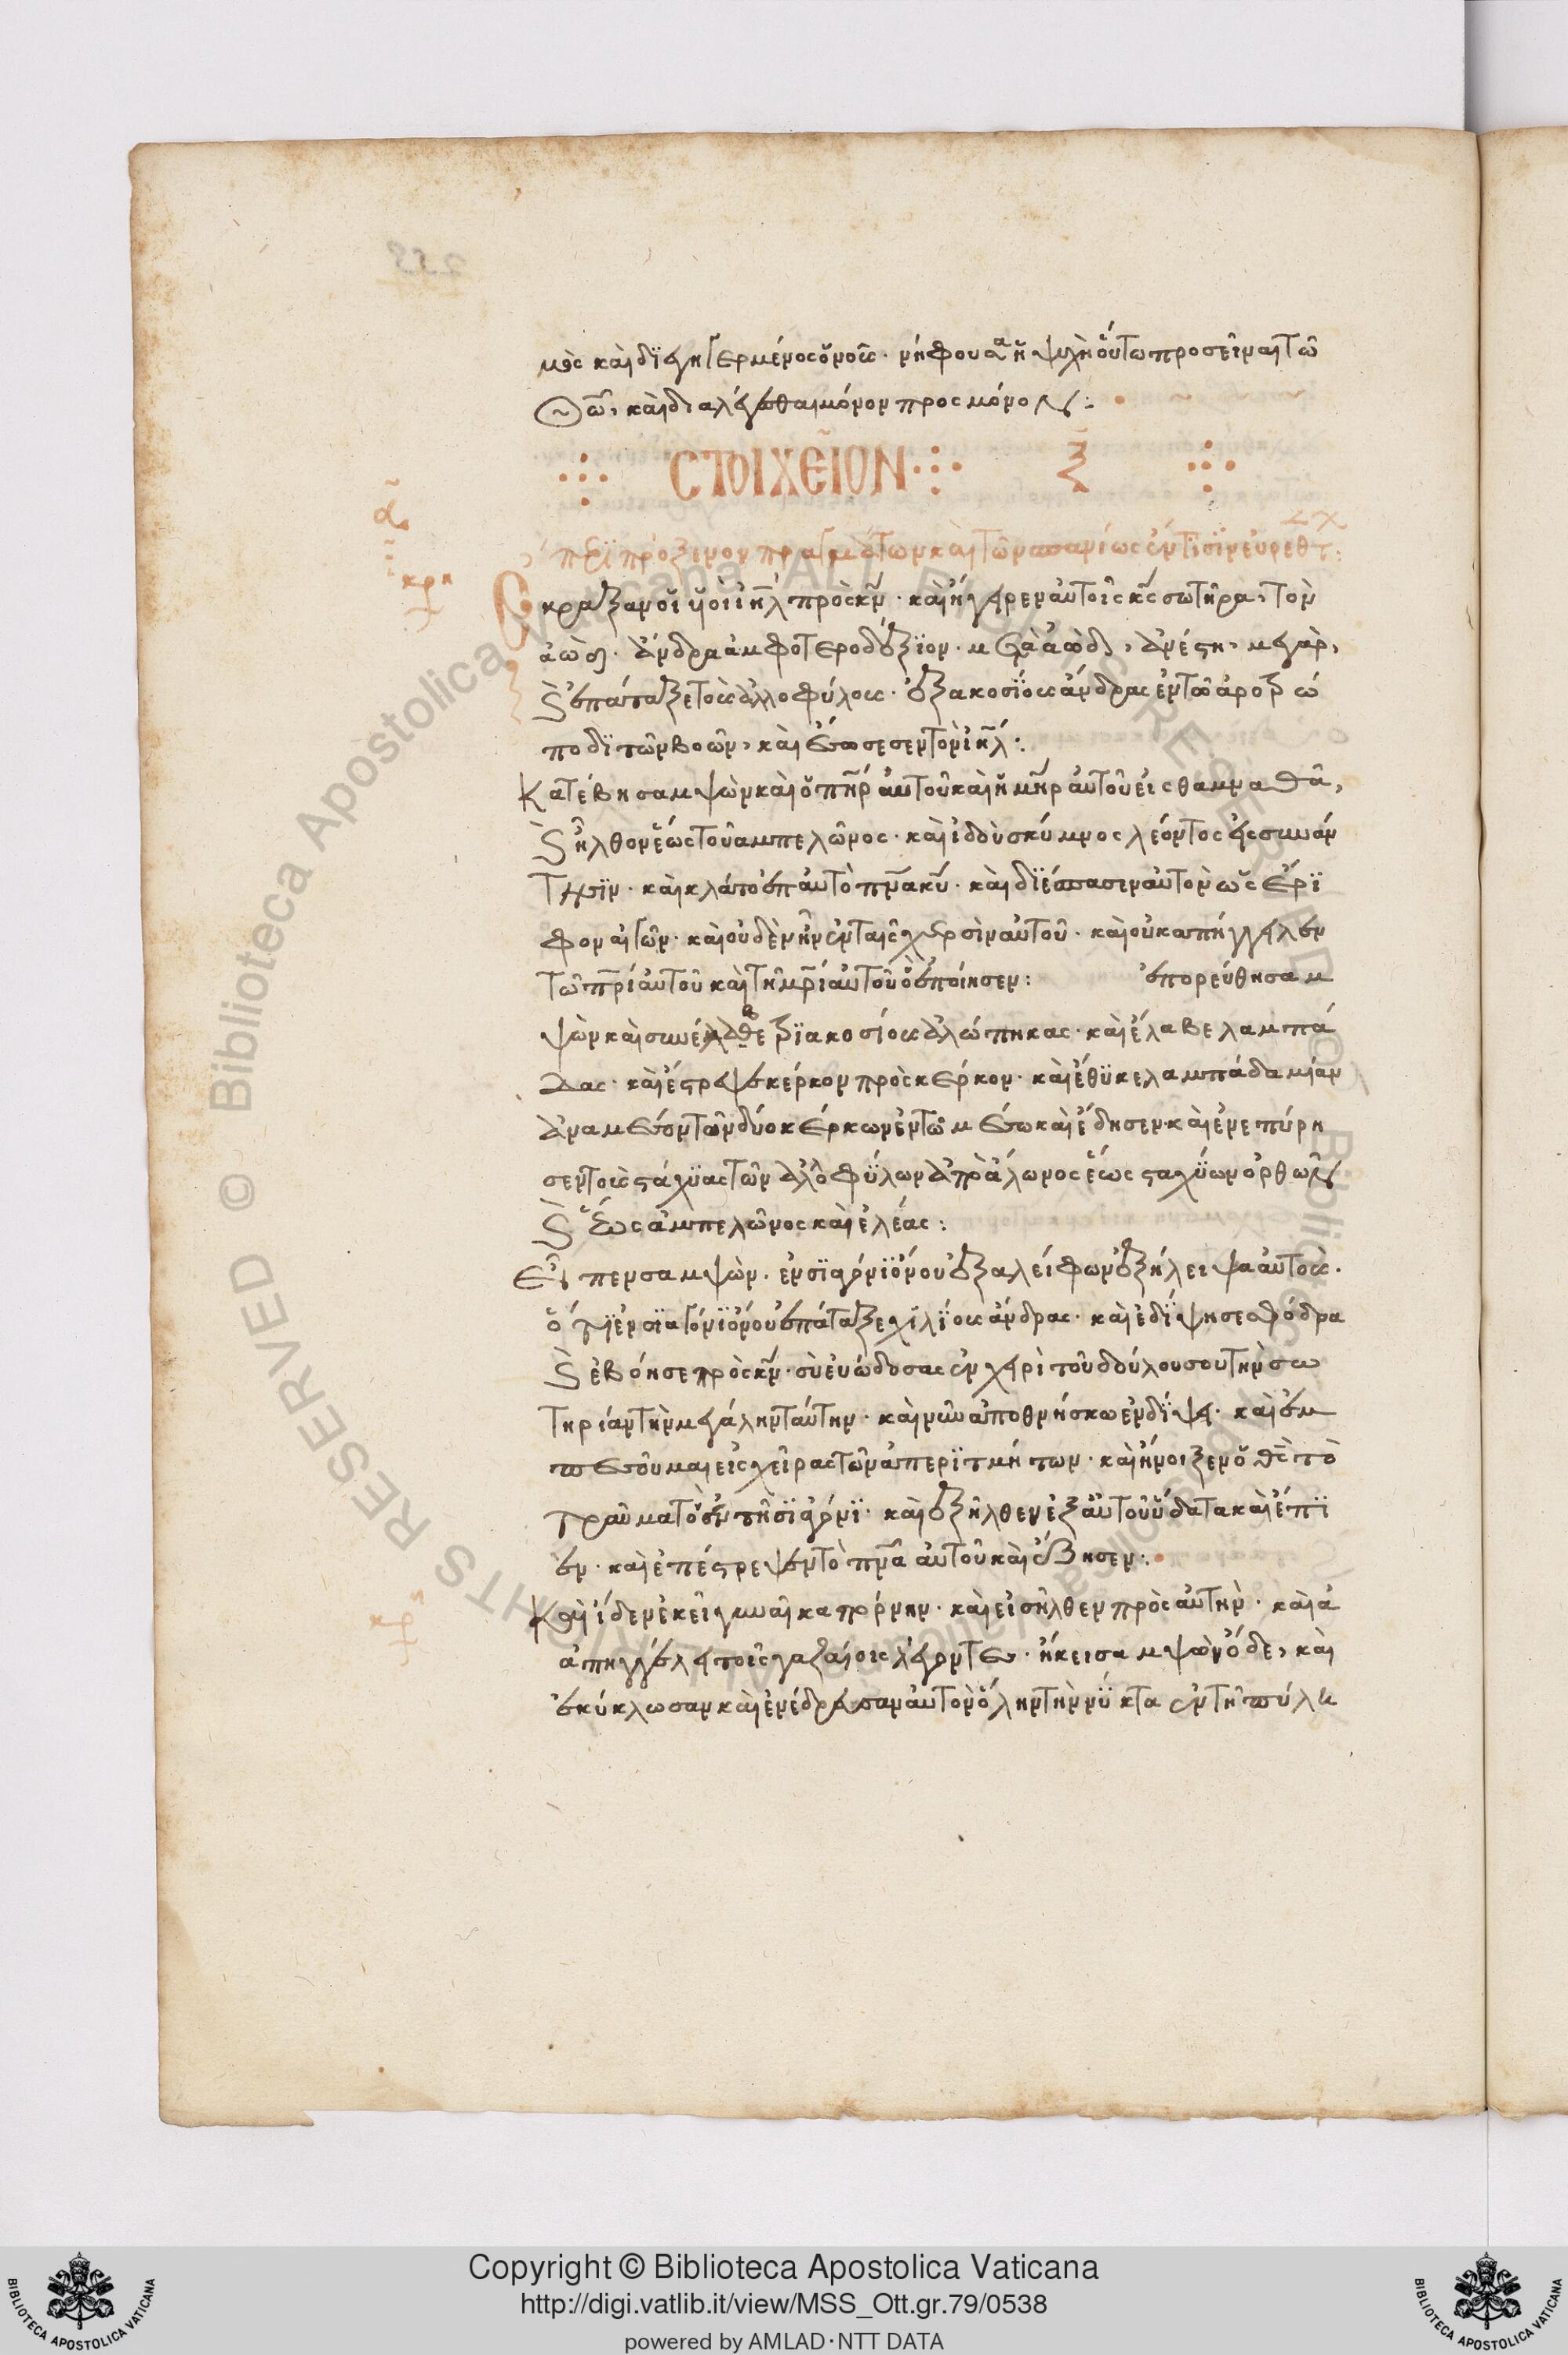 μὸς καὶ διεγηγερμένος ὁ νοῦς· νήφουσα ἡ ψυχὴ οὕτω προσεῖναι τῶ
Θῶ, καὶ διαλέγεσθαι μόνον προς μόνον:
ΣΤΟΙΧΕῖΟΝ Ξ
περὶ πραγμάτων καὶ τῶν σπανίως ἔν τισιν εὑρεθ
Εκραξαν οἱ υἱοὶ ιηλ πρὸς κν· καὶ ἤγειρεν αὐτοῖς κς σωτῆρα, τὸν
ἀὼδ· ἄνδρα ἀμφοτεροδέξιον· μετὰ ἀὼδ, ἀνέστη μεγὰρ,
καὶ ἐπάταξε τοὺς ἀλλοφύλους· ἑξακοσίους ἄνδρας ἐν τῶ ἀροτρώ
ποδι τῶν βοῶν, καὶ ἔσωσεσεν τὸν ιηλ:
Κατέβη σαμψὼν καὶ ὁ πηρ αὐτοῦ καὶ ἡ μηρ αὐτοῦ εἰς θαμναθᾶ,
καὶ ἦλθον ἕως τοῦ αμπελῶνος· καὶ ἰδοὺ σκύμνος λέοντος εἰς συνάν
τησιν· καὶ κλάπο ἐπ αυτὸ πνα κυ· καὶ διέσπασεν αὐτὸν ὡς ἔρι
φον αἰγῶν· καὶ οὐδὲν ἦν ἐν ταῖς χερσὶν αὐτοῦ· καὶ οὐκ ἀπήγγειλεν
τῶ πρὶ αὐτοῦ καὶ τῆ μρὶ αὐτοῦ ὃ ἐποίησεν: ἐπορεύθη σαμ
ψὼν καὶ συνέλαβε τριακοσίους ἀλώπηκας· καὶ ἔλαβε λαμπά
δας· καὶ ἔστρεψε κέρκον πρὸς κέρκον· καὶ ἔθηκε λαμπάδα μίαν
ἀναμεσον τῶν δύο κέρκων ἐν τῶ μέσω καὶ ἔδησεν· καὶ ἐνεπύρη
σεν τοὺς στάχυας τῶν ἀλλοφύλων ἀπὸ ἅλωνος ἕως σταχύων ὀρθῶν
καὶ ἕως ἀμπελῶνος καὶ ἐλέας:
Εἶπεν σαμψὼν· ἐν σιαγόνι ὄνου ἐξαλείφων ἐξήλειψα αὐτοὺς·
ὅτι ἐν σιαγόνι ὄνου ἐπάταξε χιλίους ἄνδρας· καὶ ἐδίψησε σφόδρα
καὶ ἐβόησε πρὸς κν· σὺ εὐώδοσας ἐν χειρὶ τοῦ δούλου σου τὴν σω
τηρίαν τὴν μεγάλην ταύτην· καὶ νῦν ἀποθνήσκω ἐν δίψει· καὶ ἐμ
πεσοῦμαι εἰς χεῖρας τῶν ἀπεριτμήτων· καὶ ἤνοιξεν ὁ θς τὸ
τραῦμα τὸ ἐν τῆ σιαγόνι· καὶ ἐξῆλθεν ἐξ αὐτοῦ ὕδατα καὶ ἔπι
εν· καὶ ἐπέστρεψεν τὸ πνα αὐτοῦ καὶ ἔζησεν:
Καὶ ἴδεν ἐκεῖ γυναῖκα πόρνην· καὶ εἰσῆλθεν πρὸς αὐτὴν· καὶ ἀ
ἀπηγγέλει τοῖς γαζαίοις λέγοντες· ἥκει σαμψὼν ὅδε, καὶ
ἐκύκλωσαν καὶ ἐνέδρευσαν αὐτὸν ὅλην τὴν νύκτα ἐν τῆ πύλη
Copyright © Biblioteca Apostolica Vaticana
http://digi.vatlib.it/view/MSS_Ott.gr.79/0538
powered by AMLAD·NTT DATA